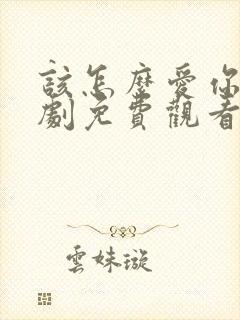 該怎麼愛你
劇免費觀看
雲妹璇